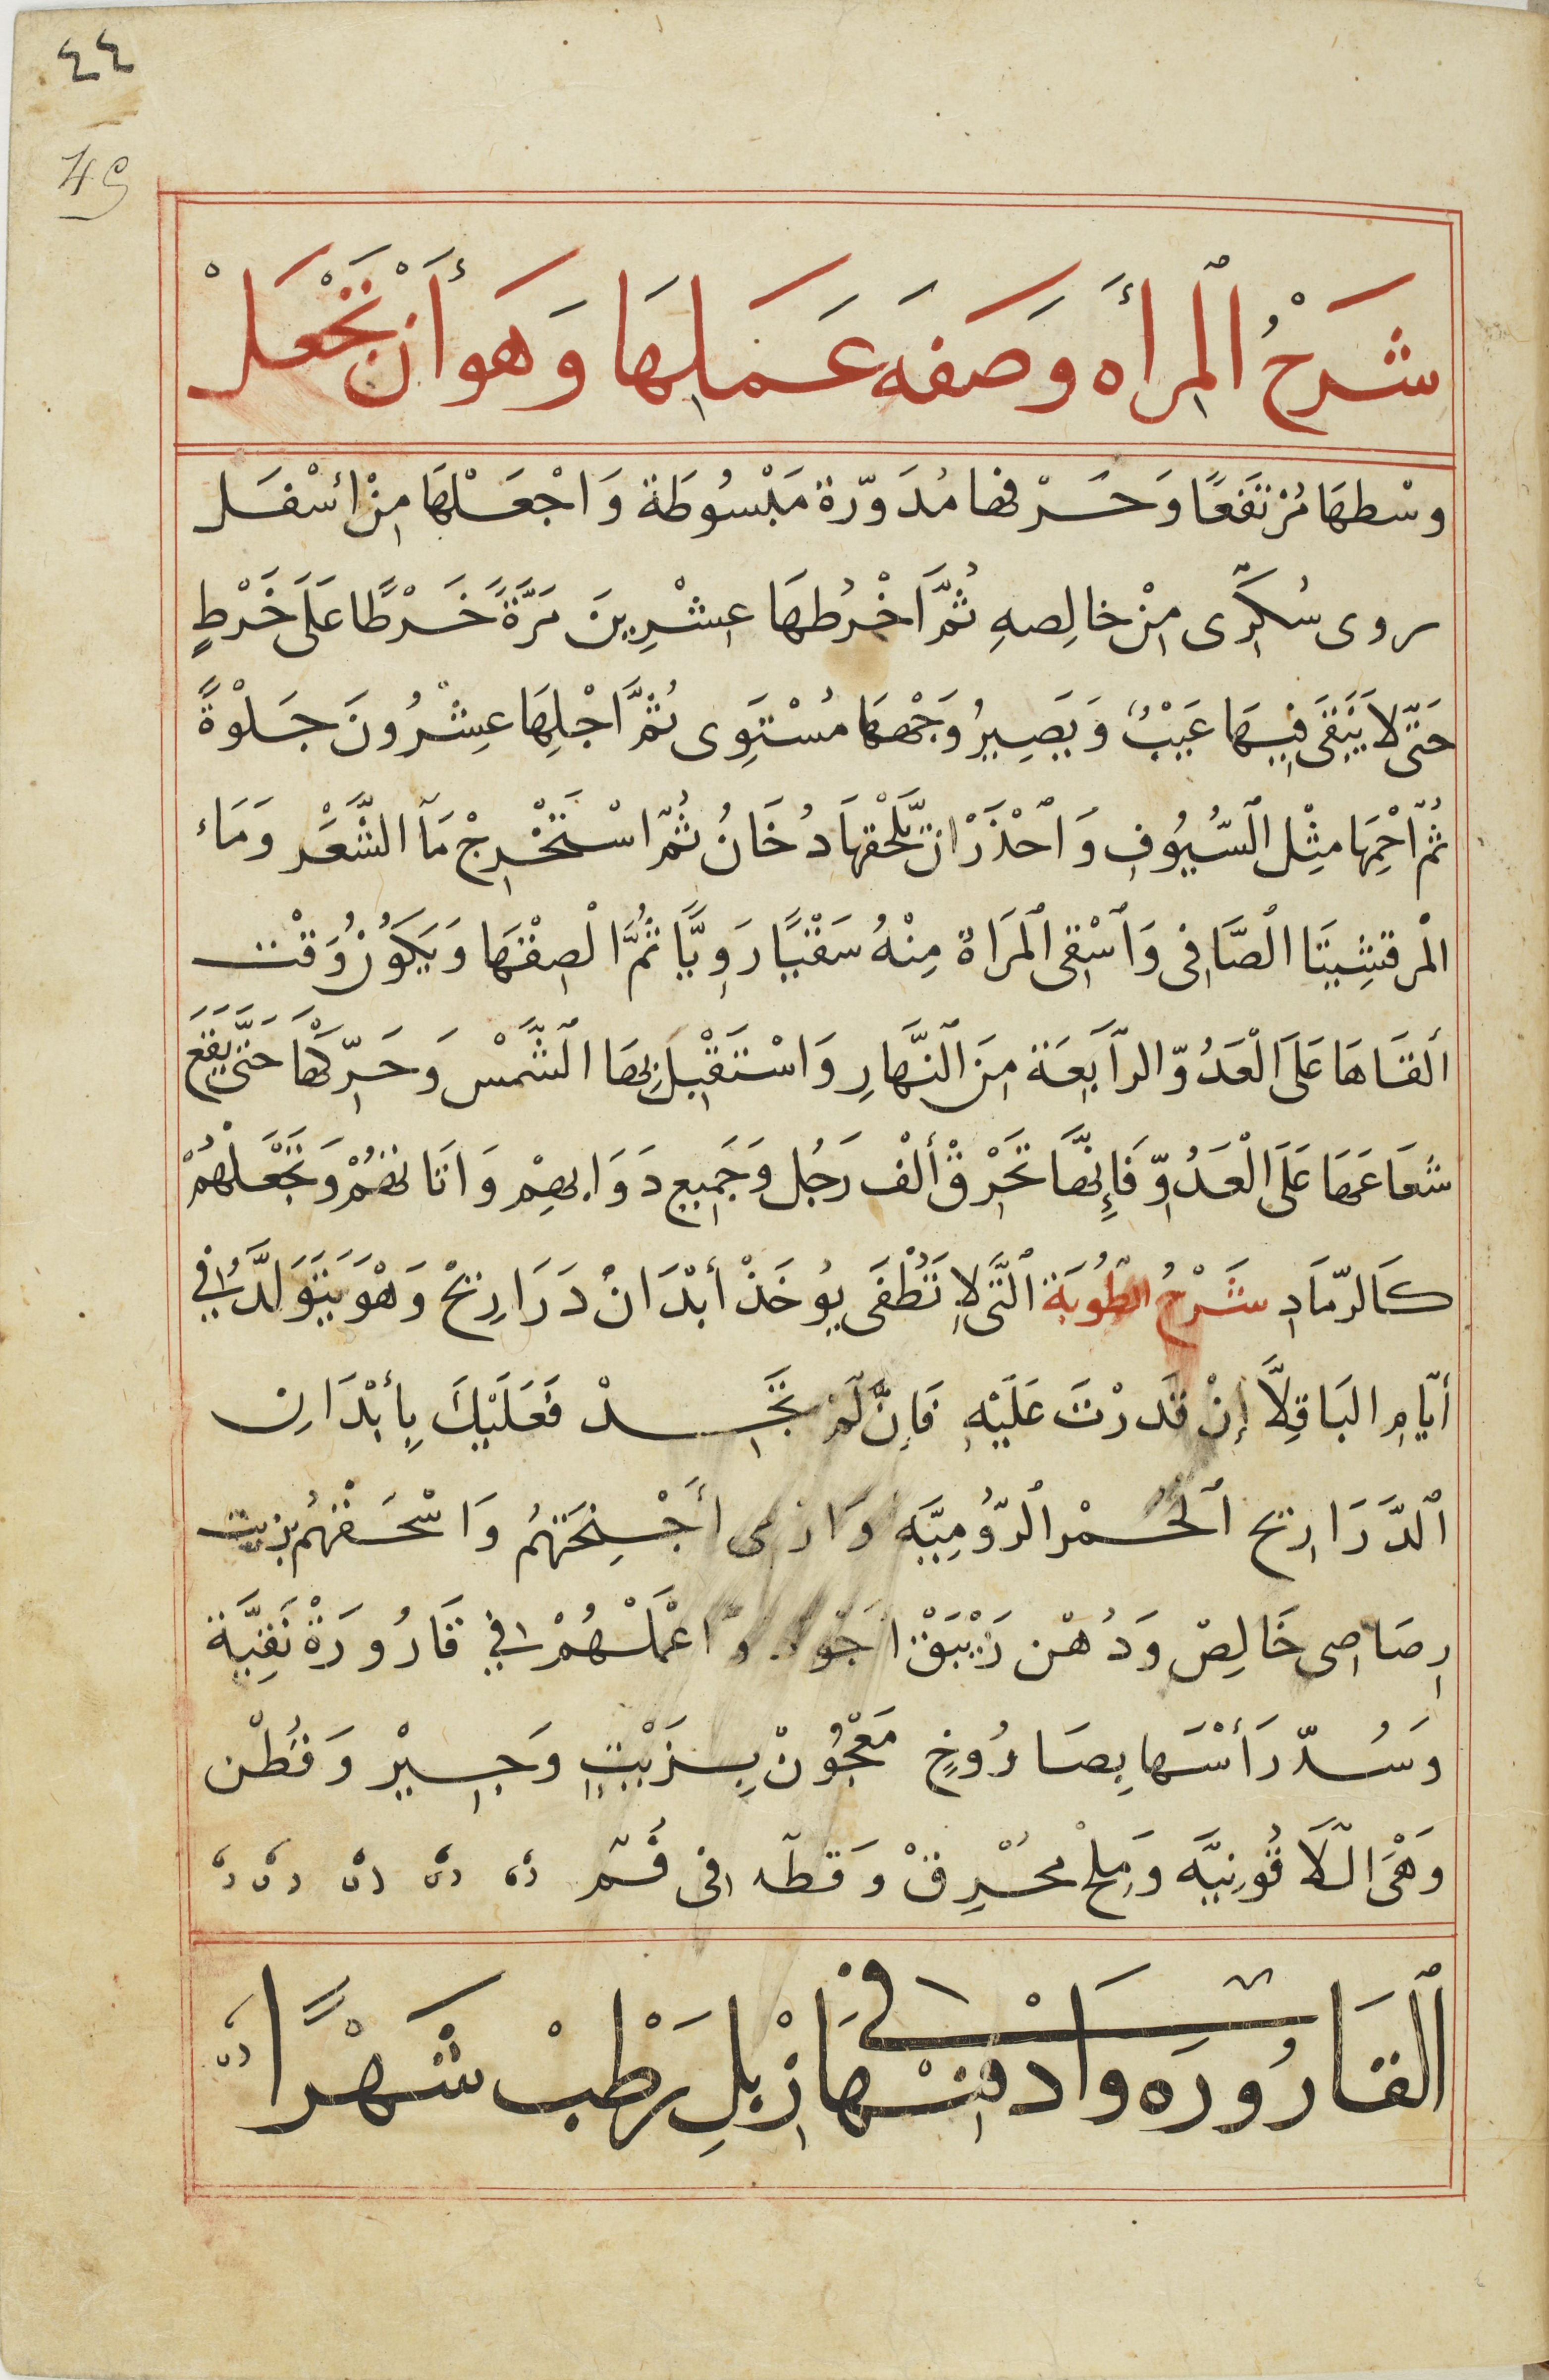 ٤٤
49
شَرْحُ ٱلْمِرأَه وَصَفَه عَمَلِهَا وَهوَ أَنْ تَجْعَلْ
وسْطهَا مُرْتَفَعًا وَحَرْفها مُدَوّرة مَبْسُوطَة وَاجْعَلْهَا مِنْ أسْفَل
روى سُكرّى مِنْ خالِصهِ ثُمَّ اخْرُطهَا عِشْرِينَ مَرَّةً خَرْطًا عَلَى خَرْطٍ
حَتّى لَا يَبْقَى فِيهَا عَيْبٌ وَيَصِيرُ وَجْهها مُسْتَوِى ثُمَّ اجْلِهَا عِشْرُونَ جَلْوةً
ثُمّ احْمِهَا مِثْل ٱلسُّيُوف وَٱحْذَرْ انْ يَّلْحَقهَا دُخَانُ ثُمّ اسْتَخْرِجْ مَآ الشَّعَْر وَمَاء
الْمرقشِيثَا الْصَّافِى وَٱسْقِى ٱلمَرَاة مِنْهُ سَقْيًا رَوِيًّا ثُمَّ الْصِقْهَا وَيَكُونُ وَقْت
ألقَاهَا عَلَى الْعَدُوّ الرّابِعَة مِنَ ٱلنَّهَارِ وَاسْتَقْبِل بِهَا الْشَّمْس وَحَرِّكْهَا حَتَّى يَقَع
شعَاعهَا عَلَى الْعَدُوّ فَإِنَّهَا تَحْرِقْ أَلْف رَجُل وَجَمِيع دَوَابهِمْ وَاثَاثهُمْ وَتَجْعَلْهُمْ
كَالرّمَادِ شَرْحُ الطُوبَة ٱلتَّى لَا تَُطْفَى يُوخَذْ أبْدَانْ دَرَارِيْحْ وَهْوَ يَتَوَلَّدُ فِي
أيّامِ البَاقِلَّا إنْ قَدرْتَ عَلَيْهِ فَإنْ لَمْ تَجِدْ فَعَلَيْكَ بِأَبْدَان
ٱلدَّرَارِيح ٱلحُمْر ٱلرّوُمِيَّه وَارْمى أجْنِحَتهُمْ وَاسْحَقْهُمْ بزيت
رِصَاصِى خَالِصْ وَدُهْن زَيْبَقْ اجْوَد وَاعْمَلْهُمْ فِي قَارُورَةْ نَقِيَّة
وَسُدّ رَأْسَهَا بِصَارُوخٍ مَعْجُونْ بِزَيْتٍ وَجِيْر وَقُطْن
وَهْىَ الّلَاقُونِيَّه وَمِلْحْ محْرِقْ وَقطّه فى فَُمّ
ٱلقَارُورَه وَادفِنْهَا فى زِبْلِ رَطْبْ شَهْرًا